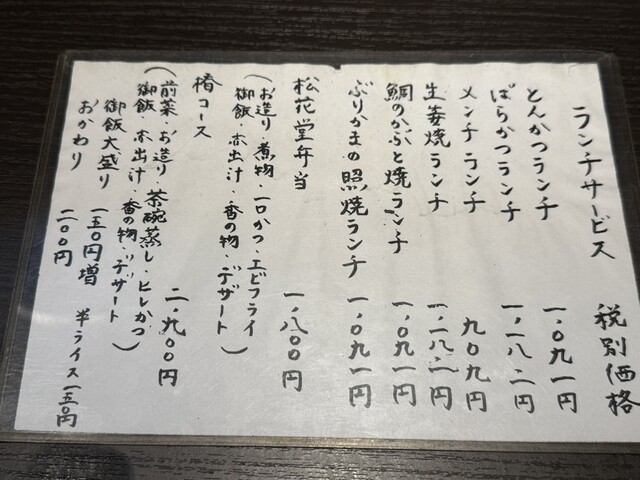 ランチサービス 税別価格
とんかつランチ 一、〇九一円
ばらかつランチ 一、一八二円
メンチランチ 九〇九円
生姜焼ランチ 一、一八二円
鯛のかぶと焼ランチ 一、〇九一円
ぶりかまの照焼ランチ 一、〇九一円
松花堂弁当 一、八〇〇円
(お造り・煮物・一口かつ・エビフライ
御飯・赤出汁・香の物・デザート)
椿コース 二、九〇〇円
(前菜・お造り・茶碗蒸し・ヒレかつ
御飯・赤出汁・香の物・デザート)
御飯大盛り 一五〇円増 半ライス一五〇円
おかわり 二〇〇円